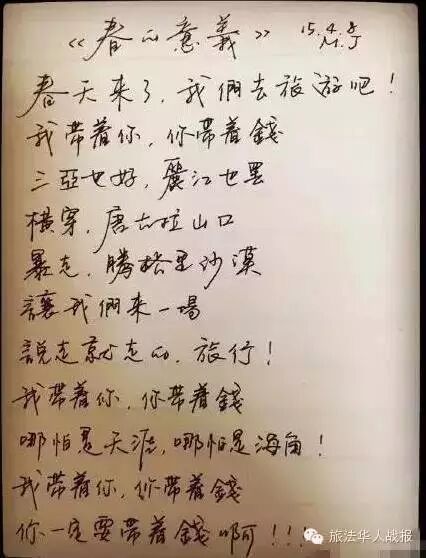 《春的意義》 15.4.8
M.J
春天来了，我們去旅游吧！
我带着你，你带着錢
三亞也好，麗江也罢
横穿，唐古拉山口
暴走，腾格里沙漠
讓我們来一場
説走就走的，旅行！
我带着你，你带着錢
哪怕是天涯，哪怕是海角！
我带着你，你带着錢
你一定要带着錢啊！！！
旅法华人战报